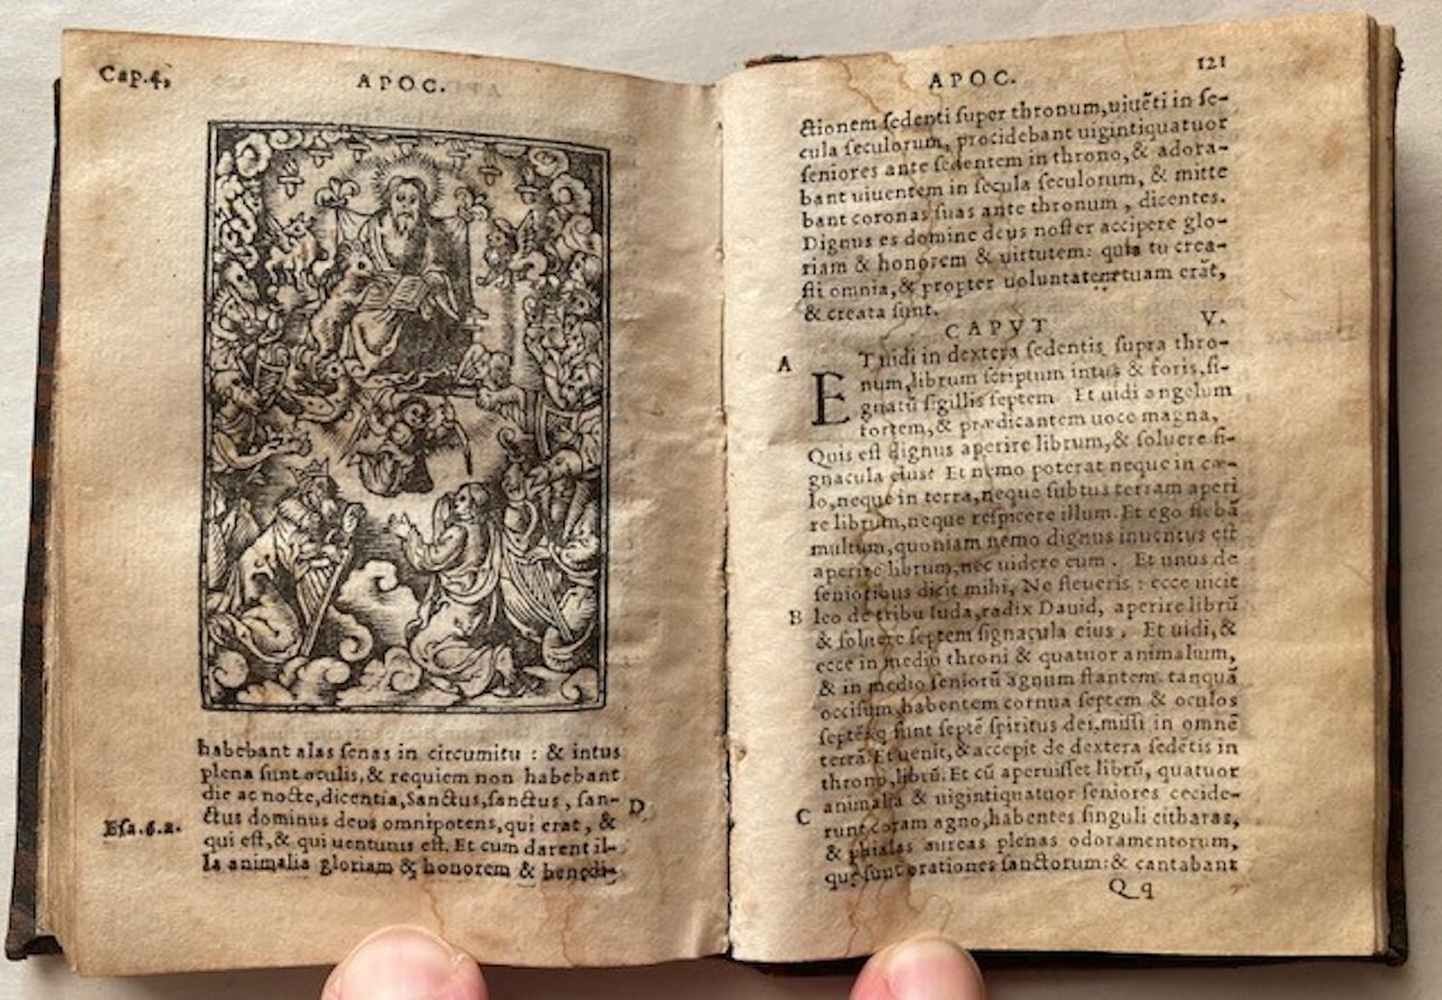 Cap.4,
APOC.
habebant alas ſenas in circumitu : & intus
plena ſunt oculis, & requiem non habebant
die ac nocte, dicentia, Sanctus, ſanctus , ſan-
D
ctus dominus deus omnipotens, qui erat , &
Eſa.6.a.
qui eſt, & qui uenturus eſt. Et cum darent il-
la animalia gloriam & honorem & benedi-
APOC.
121
ctionem ſedenti ſuper thronum, uiuẽti in ſe-
cula ſeculorum, procidebant uigintiquatuor
ſeniores ante ſedentem in throno, & adora-
bant uiuentem in ſecula ſeculorum, & mitte
bant coronas ſuas ante thronum , dicentes.
Dignus es domine deus noſter accipere glo-
riam & honorem & uirtutem: quia tu crea-
ſti omnia, & propter uoluntatem tuam erãt,
& creata ſunt.
CAPVT V.
A
ET uidi in dextera ſedentis ſupra thro-
num, librum ſcriptum intus & foris, ſi-
gnatũ ſigillis ſeptem. Et uidi angelum
fortem, & prædicantem uoce magna,
Quis eſt dignus aperire librum, & ſoluere ſi-
gnacula eius? Et nemo poterat neque in cæ-
lo, neque in terra, neque ſubtus terram aperi
re librum, neque reſpicere illum. Et ego flebã
multum, quoniam nemo dignus inuentus eſt
aperire librum, nec uidere eum . Et unus de
ſenioribus dicit mihi, Ne fleueris : ecce uicit
B leo de tribu Iuda, radix Dauid, aperire librũ
& ſoluere ſeptem ſignacula eius . Et uidi, &
ecce in medio throni & quatuor animalium,
& in medio ſeniorũ agnum ſtantem tanquã
occiſum, habentem cornua ſeptem & oculos
ſeptẽ, q ſunt ſeptẽ ſpiritus dei, miſſi in omnẽ
terrã. Et uenit, & accepit de dextera ſedẽtis in
throno, librũ. Et cũ aperuiſſet librũ, quatuor
animalia & uigintiquatuor ſeniores cecide-
C
runt coram agno, habentes ſinguli citharas,
& phialas aureas plenas odoramentorum,
quę ſunt orationes ſanctorum: & cantabant
Qq